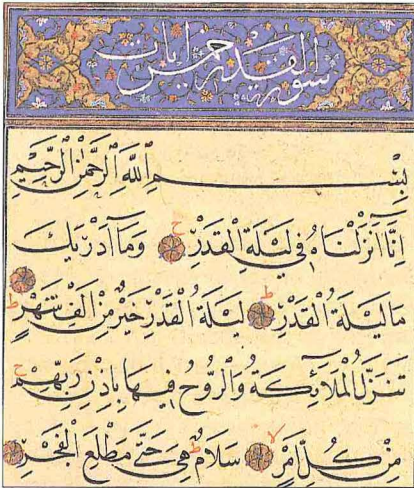 سورة القدر خمس ايات
بِسْمِ اللَّهِ الرَّحْمٰنِ الرَّحِيمِ
اِنَّا اَنْزَلْنَاهُ فِي لَيْلَةِ الْقَدْرِ ح وَمَا اَدْرٰيكَ
مَا لَيْلَةُ الْقَدْرِ ط لَيْلَةُ الْقَدْرِ خَيْرٌ مِنْ اَلْفِ شَهْرٍ ط
تَنَزَّلُ الْمَلَآئِكَةُ وَالرُّوحُ فِيهَا بِاِذْنِ رَبِّهِمْ ح
مِنْ كُلِّ اَمْرٍ لا سَلَامٌ ط هِيَ حَتّٰى مَطْلَعِ الْفَجْرِ